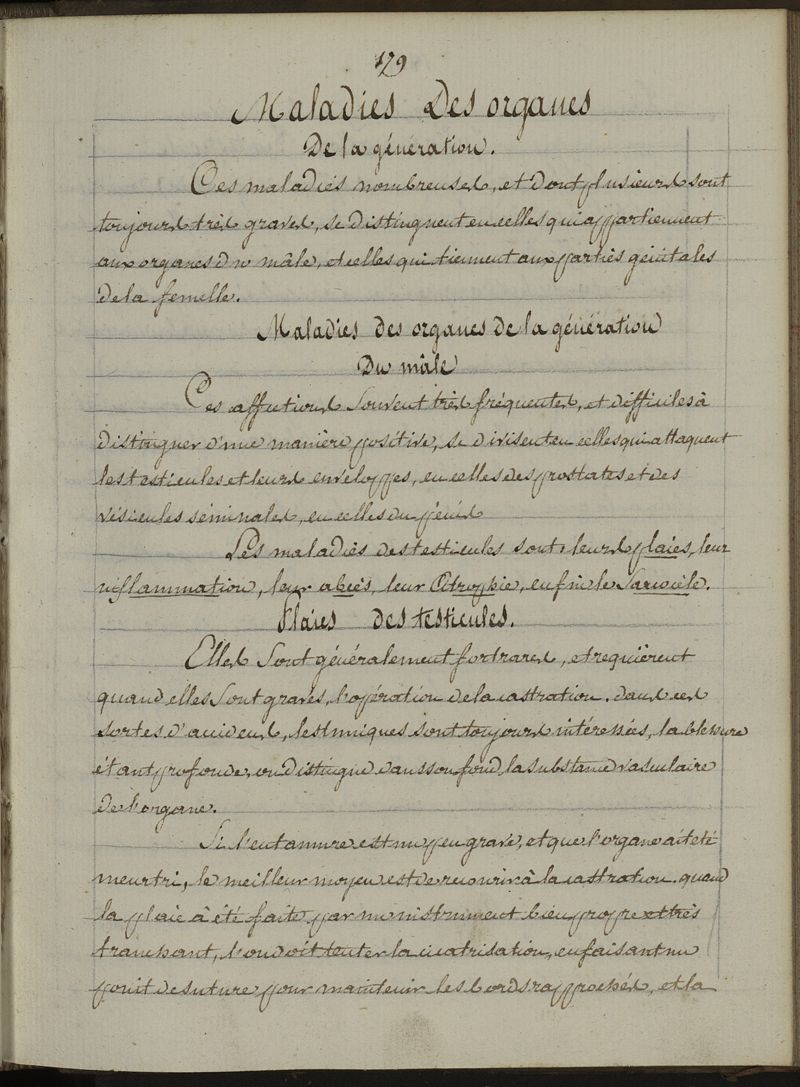 179
Maladies Des organes
De la génération.
Ces maladies nombreuses, et dont plusieurs sont
toujours très graves, se distinguent en celles qui appartiennent
aux organes du mâle, et celles qui tiennent aux parties génitales
de la femelle.
Maladies des organes de la génération
Du mâle
Ces affections souvent très fréquentes, et difficiles à
distinguer d'une manière positive, se divisent en celles qui attaquent
les testicules et leurs enveloppes, en celles des prostates et des
vésicules séminales, en celles du pénis
Les maladies des testicules sont, leurs plaies, leur
inflammation, leur abcès, leur Atrophie, enfin le Sarcocèle.
Plaies des testicules.
Elles sont généralement fort rares, et requièrent
quand elles sont graves, l'opération de la castration. dans ces
sortes d'accidens, les tuniques sont toujours intéressées, la blessure
étant profonde, on distingue dans son fond, la substance vasculaire
de l'organe.
Si l'entamure est un peu grave, et que l'organe ait été
meurtri, le meilleur moyen est de recourir à la castration. quand
la plaie à été faite par un instrument bien propre et très
tranchant, l'on doit tenter la cicatrisation, en faisant un
point de suture pour maintenir les bords rapprochés, et la